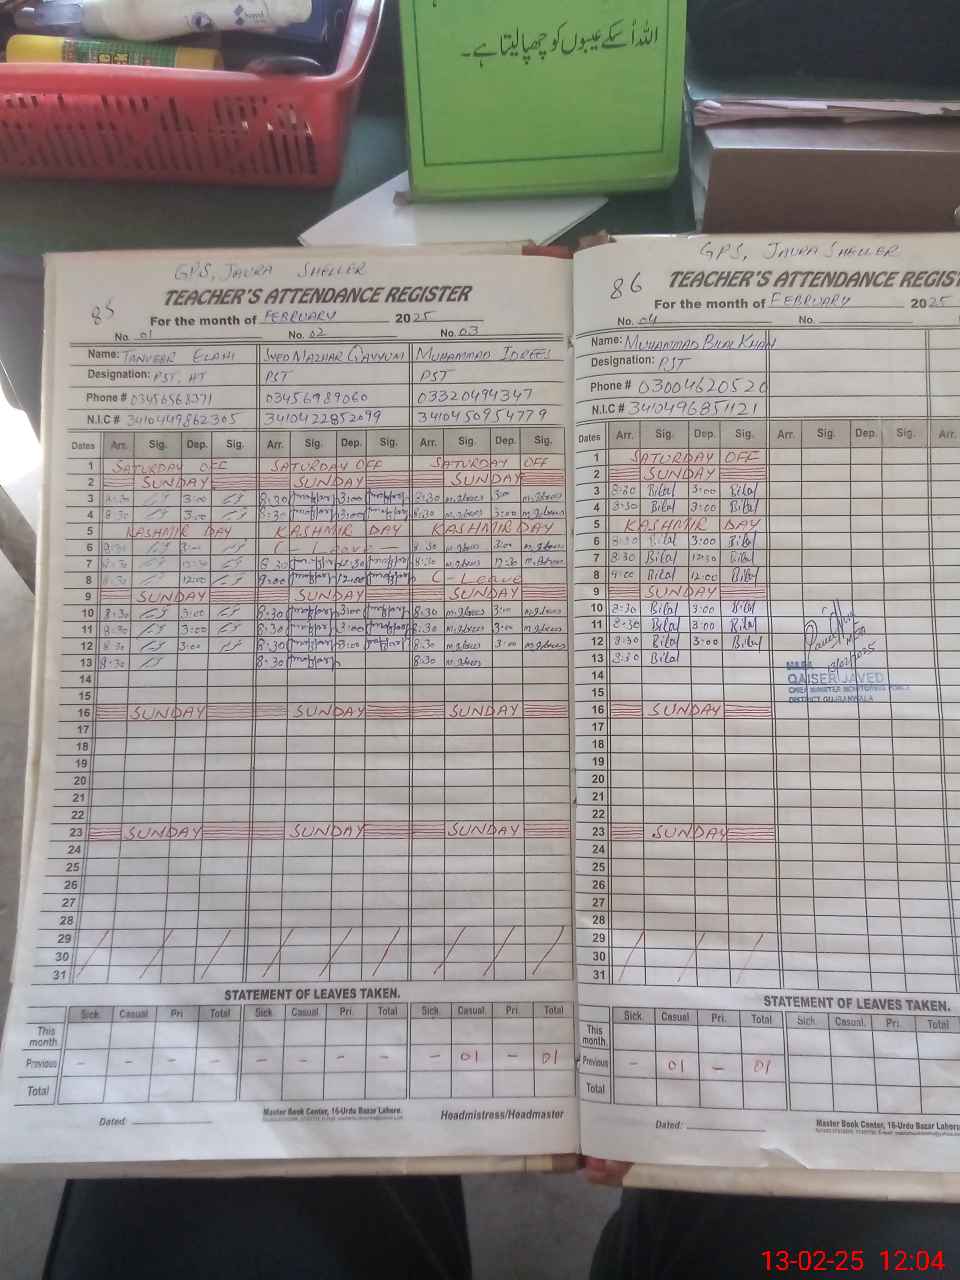 اللہ اُسکے عیبوں کو چھپا لیتا ہے۔
GPS, JAURA SHELLER
85
TEACHER'S ATTENDANCE REGISTER
For the month of FEBRUARY 2025
No. 01 No. 02 No. 03
Name: TANVEER ELAHI SYED MAZHAR QAYYUM MUHAMMAD IDREES
Designation: PST, HT PST PST
Phone # 03456989060 03320494347
N.I.C # 3410449862305 3410422852099 3410450954779
Dates Arr. Sig. Dep. Sig. Arr. Sig. Dep. Sig. Arr. Sig. Dep. Sig.
1 SATURDAY OFF SATURDAY OFF SATURDAY OFF
2 SUNDAY SUNDAY SUNDAY
3 8:30 3:00 8:30 3:00 8:30 3:00
4 8:30 3:00 8:30 3:00 8:30 3:00
5 KASHMIR DAY KASHMIR DAY KASHMIR DAY
6 8:30 3:00 C - Leave - 8:30 3:00
7 8:30 12:30 8:30 12:30 8:30 12:30
8 12:00 9:00 12:00 C - Leave
9 SUNDAY SUNDAY SUNDAY
10 8:30 3:00 8:30 3:00 8:30 3:00
11 8:30 3:00 8:30 3:00 8:30 3:00
12 8:30 3:00 8:30 3:00 8:30 3:00
13 8:30 8:30 8:30
14
15
16 SUNDAY SUNDAY SUNDAY
17
18
19
20
21
22
23 SUNDAY SUNDAY SUNDAY
24
25
26
27
28
29
30
31
STATEMENT OF LEAVES TAKEN.
Sick. Casual Pri Total Sick. Casual. Pri. Total Sick. Casual Pri. Total
This month
Previous - - - - - - - - - 01 - 01
Total
Dated: Master Book Center, 16-Urdu Bazar Lahore. Headmistress/Headmaster
GPS, JAURA SHELLER
86
TEACHER'S ATTENDANCE REGIST
For the month of FEBRUARY 2025
No. 04 No.
Name: MUHAMMAD BILAL KHAN
Designation: PST
Phone # 03004620520
N.I.C # 3410496851121
Dates Arr. Sig. Dep. Sig. Arr. Sig. Dep. Sig. Arr.
1 SATURDAY OFF
2 SUNDAY
3 8:30 Bilal 3:00 Bilal
4 8:30 Bilal 3:00 Bilal
5 KASHMIR DAY
6 8:30 Bilal 3:00 Bilal
7 8:30 Bilal 12:30 Bilal
8 9:00 Bilal 12:00 Bilal
9 SUNDAY
10 8:30 Bilal 3:00 Bilal
11 8:30 Bilal 3:00 Bilal
12 8:30 Bilal 3:00 Bilal
13 8:30 Bilal
13/02/2025
14
QAISER JAVED
CHIEF MINISTER MONITORING FORCE
DISTRICT GUJRANWALA
15
16 SUNDAY
17
18
19
20
21
22
23 SUNDAY
24
25
26
27
28
29
30
31
STATEMENT OF LEAVES TAKEN.
Sick. Casual Pri. Total Sick. Casual. Pri. Total
This month
Previous - 01 - 01
Total
Dated: Master Book Center, 16-Urdu Bazar Lahore
13-02-25 12:04